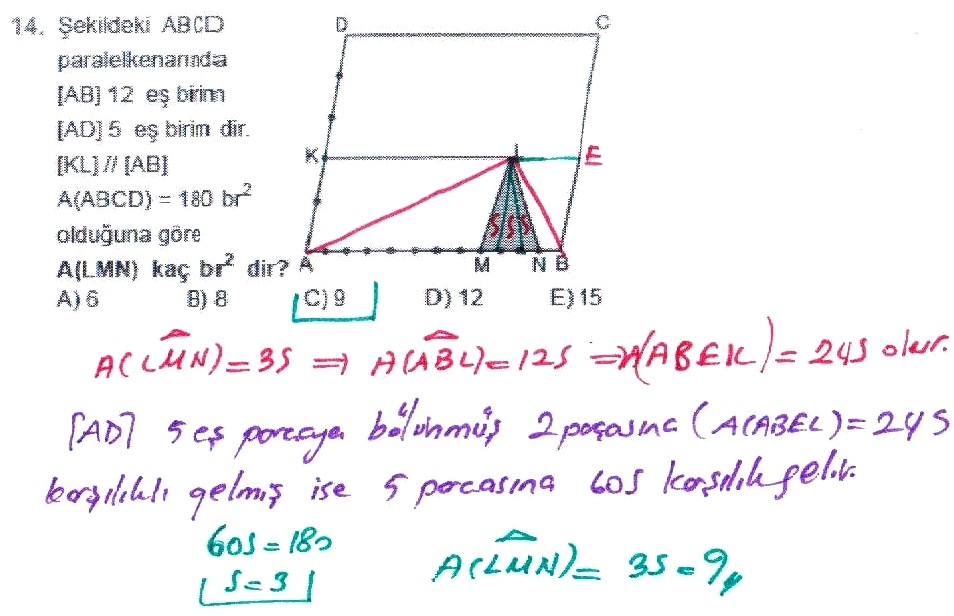 14. Şekildeki ABCD
paralelkenarında
[AB] 12 eş birim
[AD] 5 eş birim dir.
[KL] // [AB]
A(ABCD) = 180 br²
olduğuna göre
A(LMN) kaç br² dir?
A) 6 B) 8 C) 9 D) 12 E) 15
D C
K L E
S S S
A M N B
A(LMN) = 3S ⇒ A(ABL) = 12S ⇒ A(ABEK) = 24S olur.
[AD] 5 eş parçaya bölünmüş 2 parçasına (A(ABEL) = 24S
karşılıklı gelmiş ise 5 parçasına 60S karşılık gelir.
60S = 180
S = 3
A(LMN) = 3S = 9